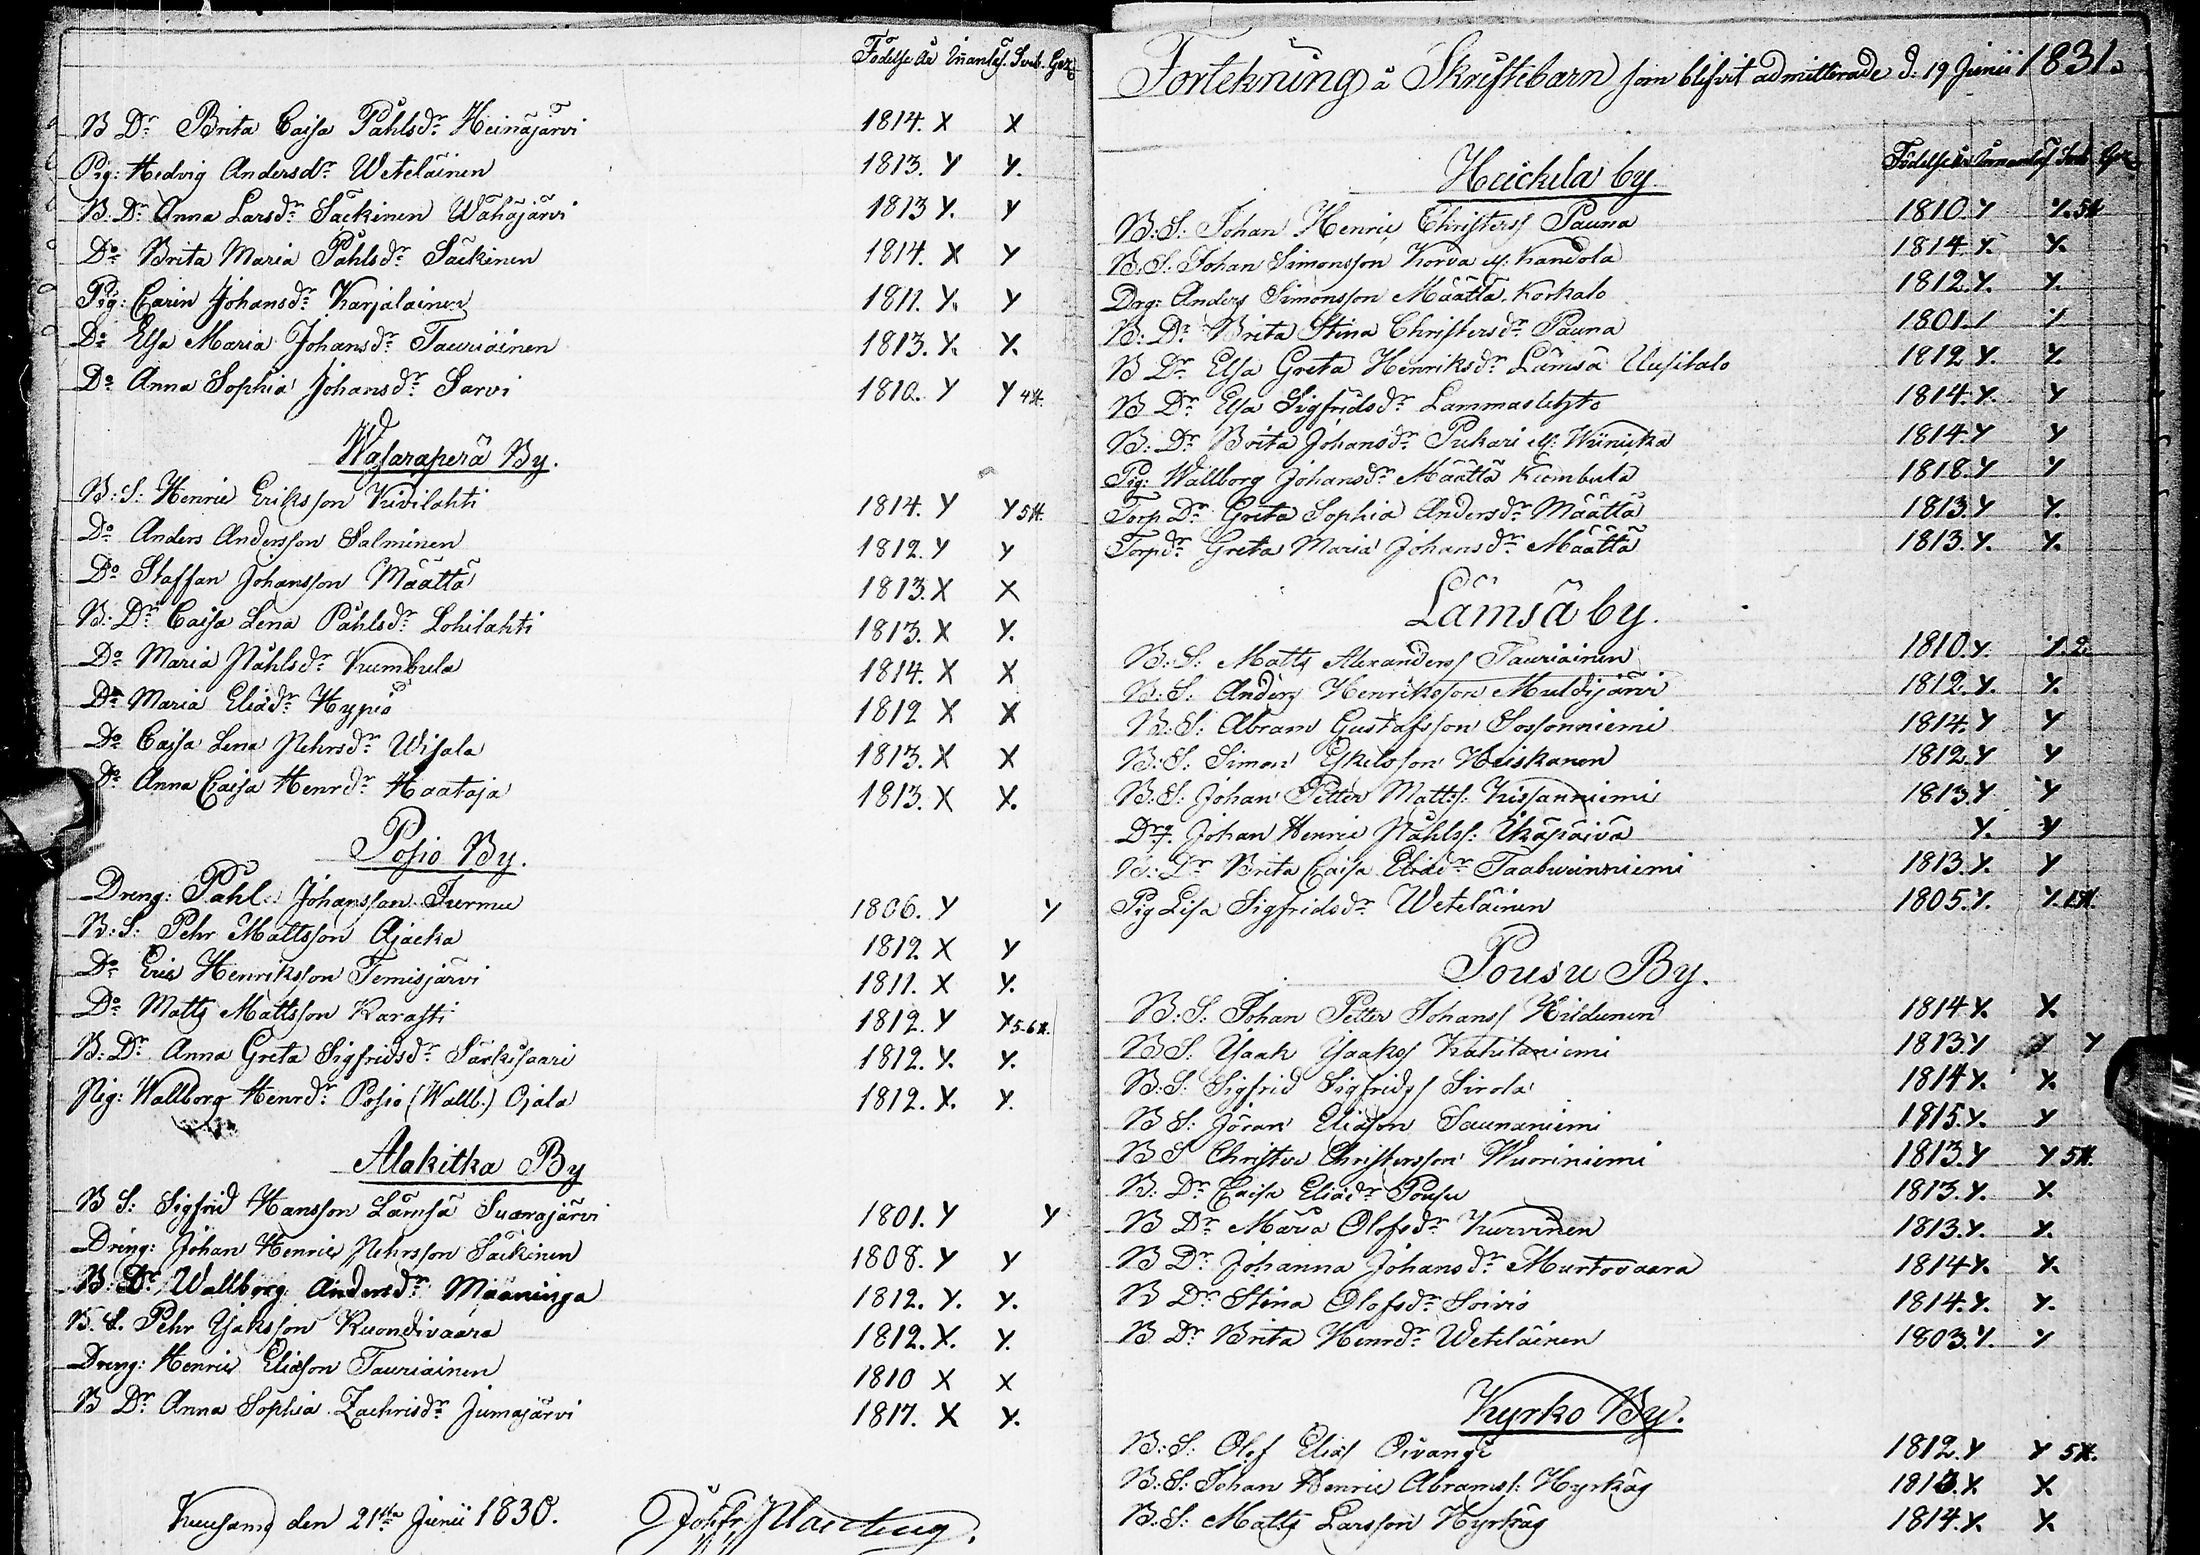 Födelse År Innanläs. Sveb. Gez
B Dr Brita Caisa Påhlsdr Heinäjärvi 1814. X X
Pig: Hedvig Andersdr Weteläinen 1813. Y Y.
B: Dr Anna Larsdr Säckinen Wähäjärvi 1813 Y. Y
Do Brita Maria Påhlsdr Säckinen 1814. X Y
Pig: Carin Johansdr Karjalainen 1811. Y. Y
Do Elsa Maria Johansdr Tauriainen 1813. Y. Y.
Do Anna Sophia Johansdr Sarvi 1810. Y Y 4 H.
Wasaraperä By.
B: S: Henric Eriksson Kivilahti 1814. Y Y 5 H.
Do Anders Andersson Salminen 1812. Y Y
Do Staffan Johansson Määttä 1813. X X
B: Dr Caisa Lena Påhlsdr Lohilahti 1813. X Y.
Do Maria Påhlsdr Kumbula 1814. X X
Do Maria Eliædr Hypiö 1812 X X
Do Caisa Lena Pehrsdr Wisala 1813. X X
Do Anna Caisa Henrdr Haataja 1813. X X.
Posio By.
Dreng: Påhl Johansson Turmu 1806. Y Y
B: S: Pehr Mattsson Ajacka 1812 X Y
Do Eric Henriksson Temisjärvi 1811. X Y.
Do Matts Mattsson Karasti 1812. Y Y 5-6 H.
B: Dr Anna Greta Sigfridsdr Särkisaari 1812. Y. Y.
Pig: Wallborg Henrdr Posio (Wallb.) Ojala 1812. Y. Y.
Alakitka By
B S: Sigfrid Hansson Lämsä Suanajärvi 1801. Y Y
Dreng: Johan Henric Pehrsson Säckinen 1808. Y Y
B: Dr Wallborg Andersdr Määninga 1812. Y. Y.
B. S. Pehr Isaksson Kuondivaara 1812. X. Y.
Dreng: Henric Eliæson Tauriainen 1810 X X
B Dr Anna Sophia Zachrisdr Jumajärvi 1817. X Y.
Kuusamo den 21sta Junii 1830.
Förtekning å Skriftebarn som blifvit admitterade d: 19 Junii 1831.
Födelse år Innanläs Sveb Gez
Heickilä by
B: S: Johan Henric Christerss Pauna 1810. Y Y. 5 H
B. S. Johan Simonsson Korva el. Kandola 1814. Y. Y.
Drg: Anders Simonsson Määttä Korkalo 1812. Y. Y.
B: Dr Brita Stina Christersdr Pauna 1801. Y Y
B Dr Elsa Greta Henriksdr Lämsä Uusitalo 1812 Y. Y.
B Dr Elsa Sigfridsdr Lammaslehto 1814. Y. Y
B: Dr Brita Johansdr Pukari el. Wiinicka 1814. Y Y
Pig: Wallborg Johansdr Määttä Kumbula 1818. Y Y
Torp Dr Greta Sophia Andersdr Määttä 1813. Y Y.
Torpdr Greta Maria Johansdr Määttä 1813. Y. Y.
Lämsä by.
B: S: Matts Alexanderss Tauriainen 1810. Y. Y. 2.
B: S: Anders Henriksson Muldijärvi 1812. Y. Y.
B: S: Abram Gustafsson Sossonniemi 1814. Y Y
B: S: Simon Eskelsson Heiskanen 1812. Y Y
B: S: Johan Petter Mattss: Kissanniemi 1813. Y Y
Drg. Johan Henric Påhlss: Ikäpäivä Y. Y
B: Dr Brita Caisa Eliædr Taabuinniemi 1813. Y. Y
Pig Lisa Sigfridsdr Weteläinen 1805. Y. Y.
Pousu By.
B: S: Johan Petter Johanss Hildunen 1814 Y. Y.
B S: Isaak Isaakss Kahilaniemi 1813. Y Y Y
B: S: Sigfrid Sigfridss Sirola 1814 Y. Y.
B S: Jöran Eliæson Saunaniemi 1815. Y. Y
B S Christer Christersson Wuoriniemi 1813. Y Y 5 H.
B: Dr Caisa Eliædr Pousu 1813. Y. Y.
B Dr Maria Olofsdr Kurvinen 1813. Y. Y.
B Dr Johanna Johansdr Murtovaara 1814 Y. Y.
B Dr Stina Olofsdr Soivio 1814. Y. Y.
B Dr Brita Henrdr Weteläinen 1803. Y. Y
Kyrko By.
B: S: Olof Eliæs Oivangi 1812. Y Y 5 H.
B: S: Johan Henric Abramss: Hyrkäs 1813. Y. Y.
B: S: Matts Larsson Hyrkäs 1814. Y. Y.